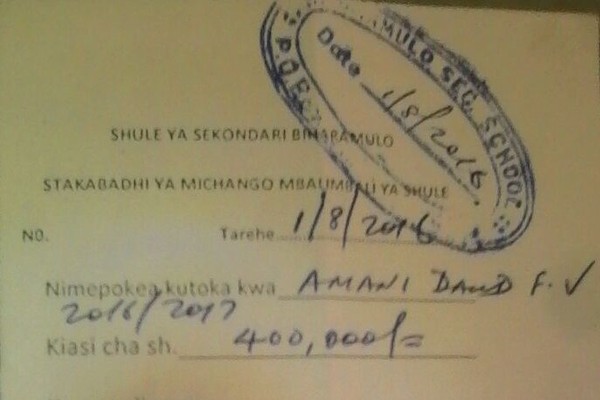 SHULE YA SEKONDARI BIHARAMULO
STAKABADHI YA MICHANGO MBALIMBALI YA SHULE
N0. Tarehe 1/8/2016
Nimepokea kutoka kwa AMANI DAUD F.V
2016/2017
Kiasi cha sh. 400,000/=
MULO SEC. SCHOOL
Date 1/8/2016
P.O.B